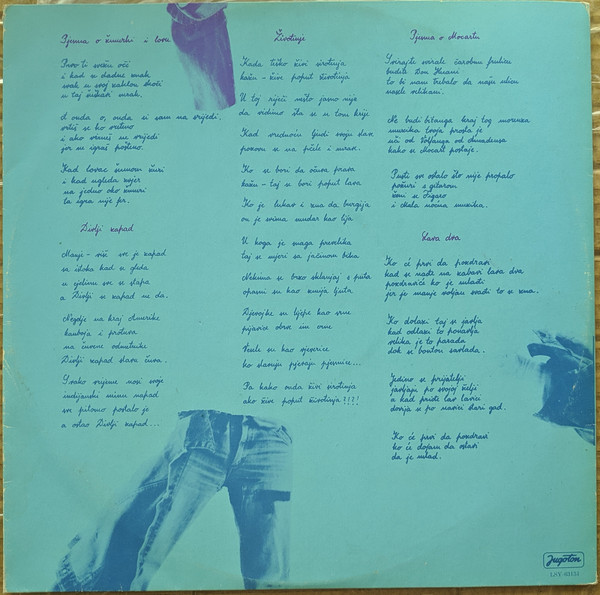 Pjesma o žmurki i lovu
Prvo ti svežu oči
i kad se dadne znak
svak u svoj zaklon skoči
u taj čudesni mrak.
A onda o, onda si sam na svijetu.
vrtiš se ko vreteno
i ako varaš ne vrijedi
jer se igraš pošteno.
Kad lovac šumom žuri
i kad ugleda svijet
na jedno oko žmuri
ta igra nije fer.
Divlji zapad
Manje - više sve je zapad
sa istoka kad se gleda
u cjelinu sve se stapa
a Divlji se zapad ne da.
Negdje na kraj Amerike
kauboja i protuva
na čuvene odmetnike
Divlji zapad slavu čuva.
Svako vrijeme nosi svoje
indijanski minu napad
sve pitomo postalo je
a ostao Divlji zapad...
Životinje
Kada teško živi sirotinja
kažu - živi poput životinja
U toj riječi nešto jasno nije
da vidimo šta se u tom krije
Kad vrednoću ljudi svoju slave
pozovu se na pčele i mrave.
Ko se bori da očuva prava
kažu - taj se bori poput lava
Ko je lukav i zna da
on je svima mudar kao lija
U koga je snaga prevelika
taj se mjeri sa jačinom bika
Nekima se brzo sklanjaj s puta
opasni su kao zmija ljuta
Djevojke su lijepe kao srne
pijavice obrve im crne
Vesele su kao vjeverice
ko slavuju pjevaju pjesmice...
Pa kako onda živi sirotinja
ako žive poput životinja?!?!
Pjesma o Mocartu
Svirajte svirale čarobnu frulicu
budite Don Huani
to bi nam trebalo da našu ulicu
nasele velikani.
Ne budi bitanga kraj tog
muzika tvoja prosta je
uči od Volfganga od Amadeusa
kako se Mocart postaje.
Pusti sve ostalo što nije propalo
požuri s gitarom
ženi se Figaro
i Mala noćna muzika.
Lava dva
Ko će prvi da pozdravi
kad se nađe na zabavi lava dva
pozdraviće ko je mlađi
jer je manje voljan svađi to se zna.
Ko dolazi taj se javlja
kad odlazi to ponavlja
velika je to parada
dok se bonton savlada.
Jedino se prijatelji
javljaju po svojoj želji
a kad priđe lav lavici
dovija se po navici stari gad.
Ko će prvi da pozdravi
ko će dojam da ostavi
da je mlad.
Jugoton
LSY